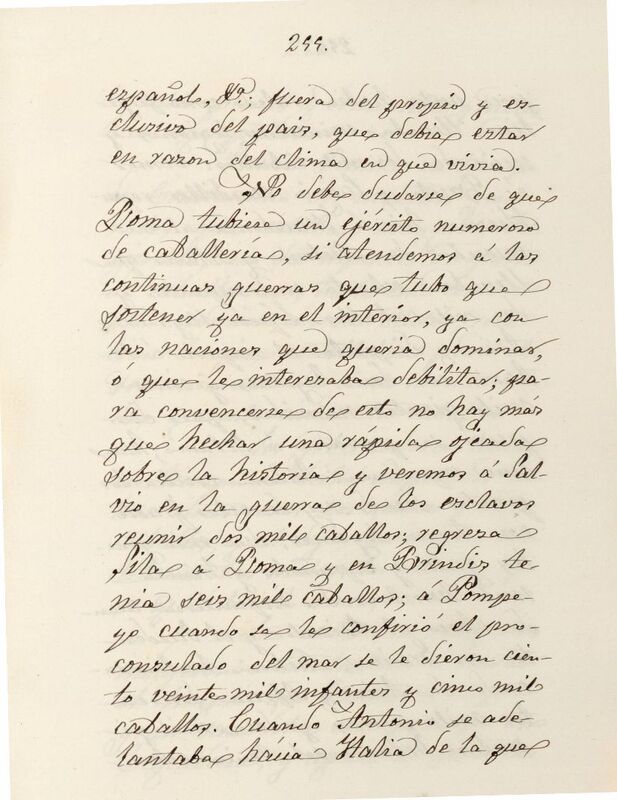 255.
español, &ª; fuera del propio y es-
clusivo del pais, que debia estar
en razon del clima en que vivia.
No debe dudarse de que
Roma tubiera un ejército numeroso
de caballería, si atendemos á las
continuas guerras que tubo que
sostener ya en el interior, ya con
las naciones que queria dominar,
ó que le interesaba debilitar; pa-
ra convencerse de esto no hay más
que hechar una rápida ojeada
sobre la historia y veremos á Sal-
vio en la guerra de los esclavos
reunir dos mil caballos; regresa
Sila á Roma y en Brindis te-
nia seis mil caballos; á Pompe-
yo cuando se le confirió el pro-
consulado del mar se le dieron cien-
to veinte mil infantes y cinco mil
caballos. Cuando Antonio se ade-
lantaba hácia Italia de la que